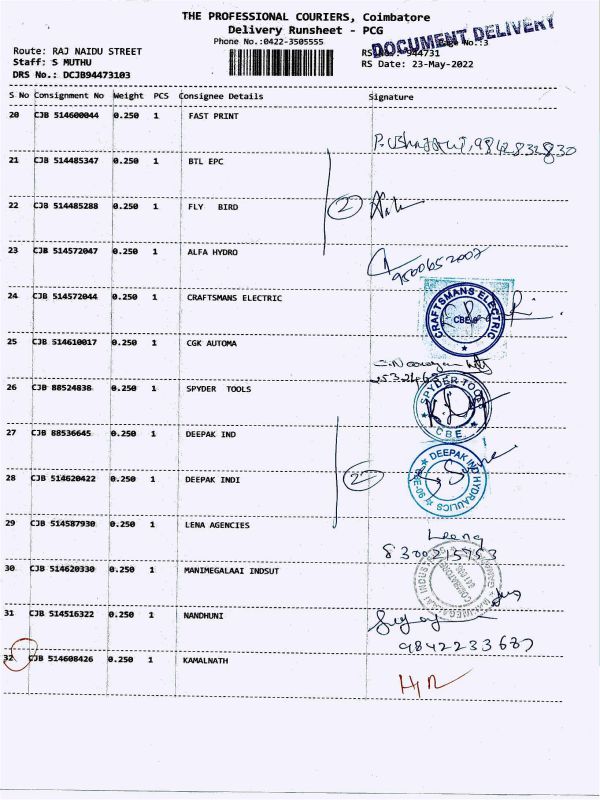 THE PROFESSIONAL COURIERS, Coimbatore
Delivery Runsheet - PCG
DOCUMENT DELIVERY
Phone No.:0422-3505555
No.:3
Route: RAJ NAIDU STREET
944731
Staff: S MUTHU
RS Date: 23-May-2022
DRS No.: DCJB94473103
S No Consignment No Weight PCS Consignee Details Signature
20 CJB 514600044 0.250 1 FAST PRINT
9842832830
21 CJB 514485347 0.250 1 BTL EPC
22 CJB 514485288 0.250 1 FLY BIRD
2
23 CJB 514572047 0.250 1 ALFA HYDRO
9500652002
24 CJB 514572044 0.250 1 CRAFTSMANS ELECTRIC
CRAFTSMANS ELECTRIC
25 CJB 514610017 0.250 1 CGK AUTOMA
26 CJB 88524838 0.250 1 SPYDER TOOLS
SPYDER TOOLS
CBE
27 CJB 88536645 0.250 1 DEEPAK IND
28 CJB 514620422 0.250 1 DEEPAK INDI
2
DEEPAK IND HYDRAULICS
29 CJB 514587930 0.250 1 LENA AGENCIES
Leena
8300215953
30 CJB 514620330 0.250 1 MANIMEGALAAI INDSUT
31 CJB 514516322 0.250 1 NANDHUNI
9842233687
32 CJB 514608426 0.250 1 KAMALNATH